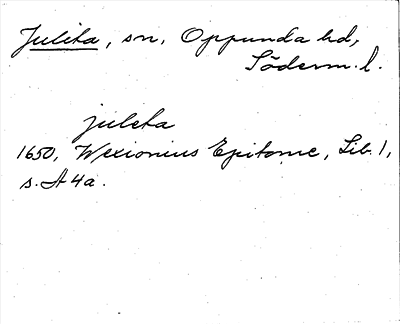 Julita, sn, Oppunda hd,
Söderm. l.
juleta
1650, Wexionius Epitome, Lib. 1,
s. A 4a.